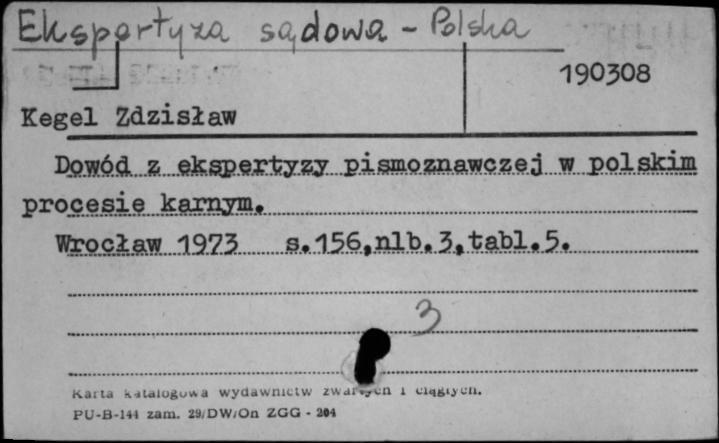 Ekspertyza sądowa - Polska
190308
Kegel Zdzisław
Dowód z ekspertyzy pismoznawczej w polskim
procesie karnym.
Wrocław 1973 s.156,nlb.3,tabl.5.
3
Karta katalogowa wydawnictw zwartych i ciągłych.
PU-B-144 zam. 29/DW/On ZGG - 204